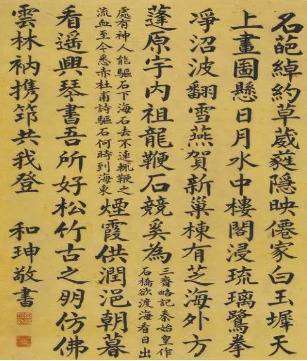 名葩綽約草葳蕤隱映僊家白玉墀天
上畫圖懸日月水中樓閣浸琉璃鷺拳
凈沼波翻雪燕賀新巢棟有芝海外方
蓬原宇內祖龍鞭石競奚為
三齊略記秦始皇作
石橋欲渡海看日出
處有神人能驅石下海石去不速輒鞭之
流血至今悉赤杜甫詩驅石何時到海東
煙霞供潤浥朝暮
看遙興琴書吾所好松竹古之朋仿佛
雲林衲攜筇共我登
和珅敬書